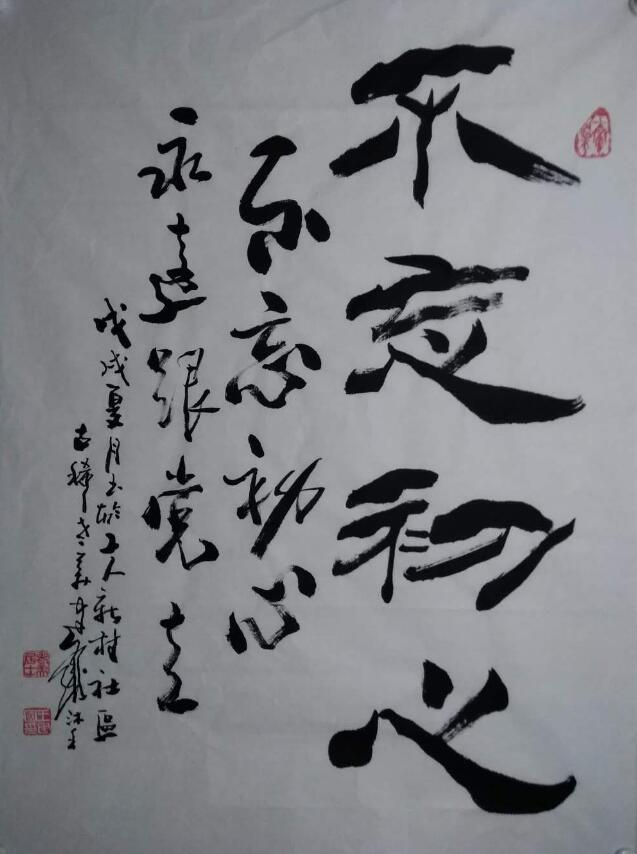 不忘初心
不忘初心
永远跟党走
戊戌夏月书於工人新村社區
古稀老